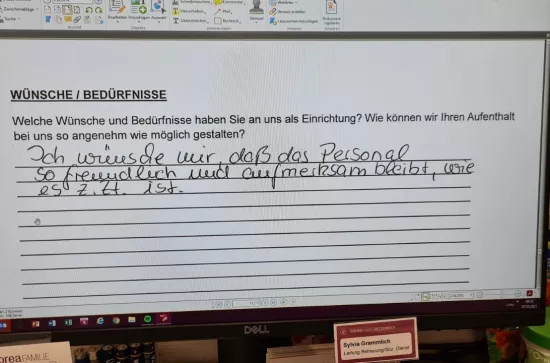 WÜNSCHE / BEDÜRFNISSE
Welche Wünsche und Bedürfnisse haben Sie an uns als Einrichtung? Wie können wir Ihren Aufenthalt
bei uns so angenehm wie möglich gestalten?
Ich wünsche mir, daß das Personal
so freundlich und aufmerksam bleibt, wie
es z.Zt. ist.
DELL
FAMILIE
Sylvia Grammlich
Leitung Betreuungsfbz. Dienst